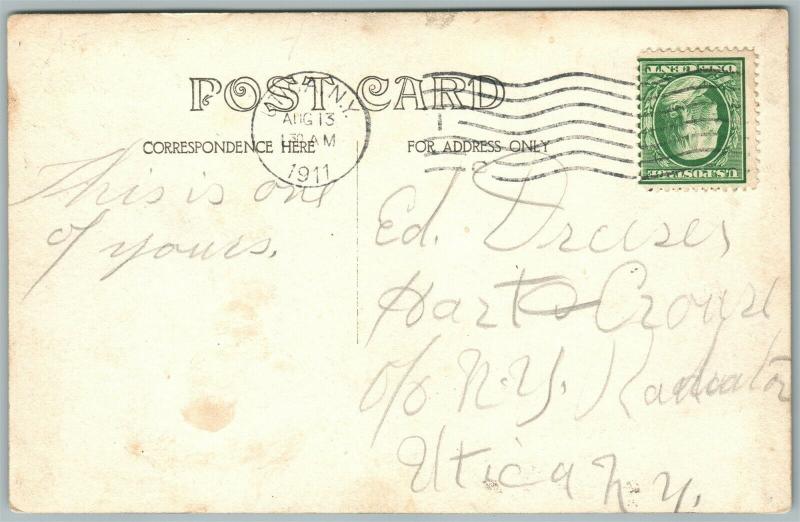 POST CARD
UTICA, N.Y.
AUG 13
1 30 AM
1911
CORRESPONDENCE HERE
FOR ADDRESS ONLY
U.S. POSTAGE
ONE CENT
This is one
of yours.
Ed. Dreises
Hart & Crouse
c/o N.Y. Radiator
Utica N.Y.